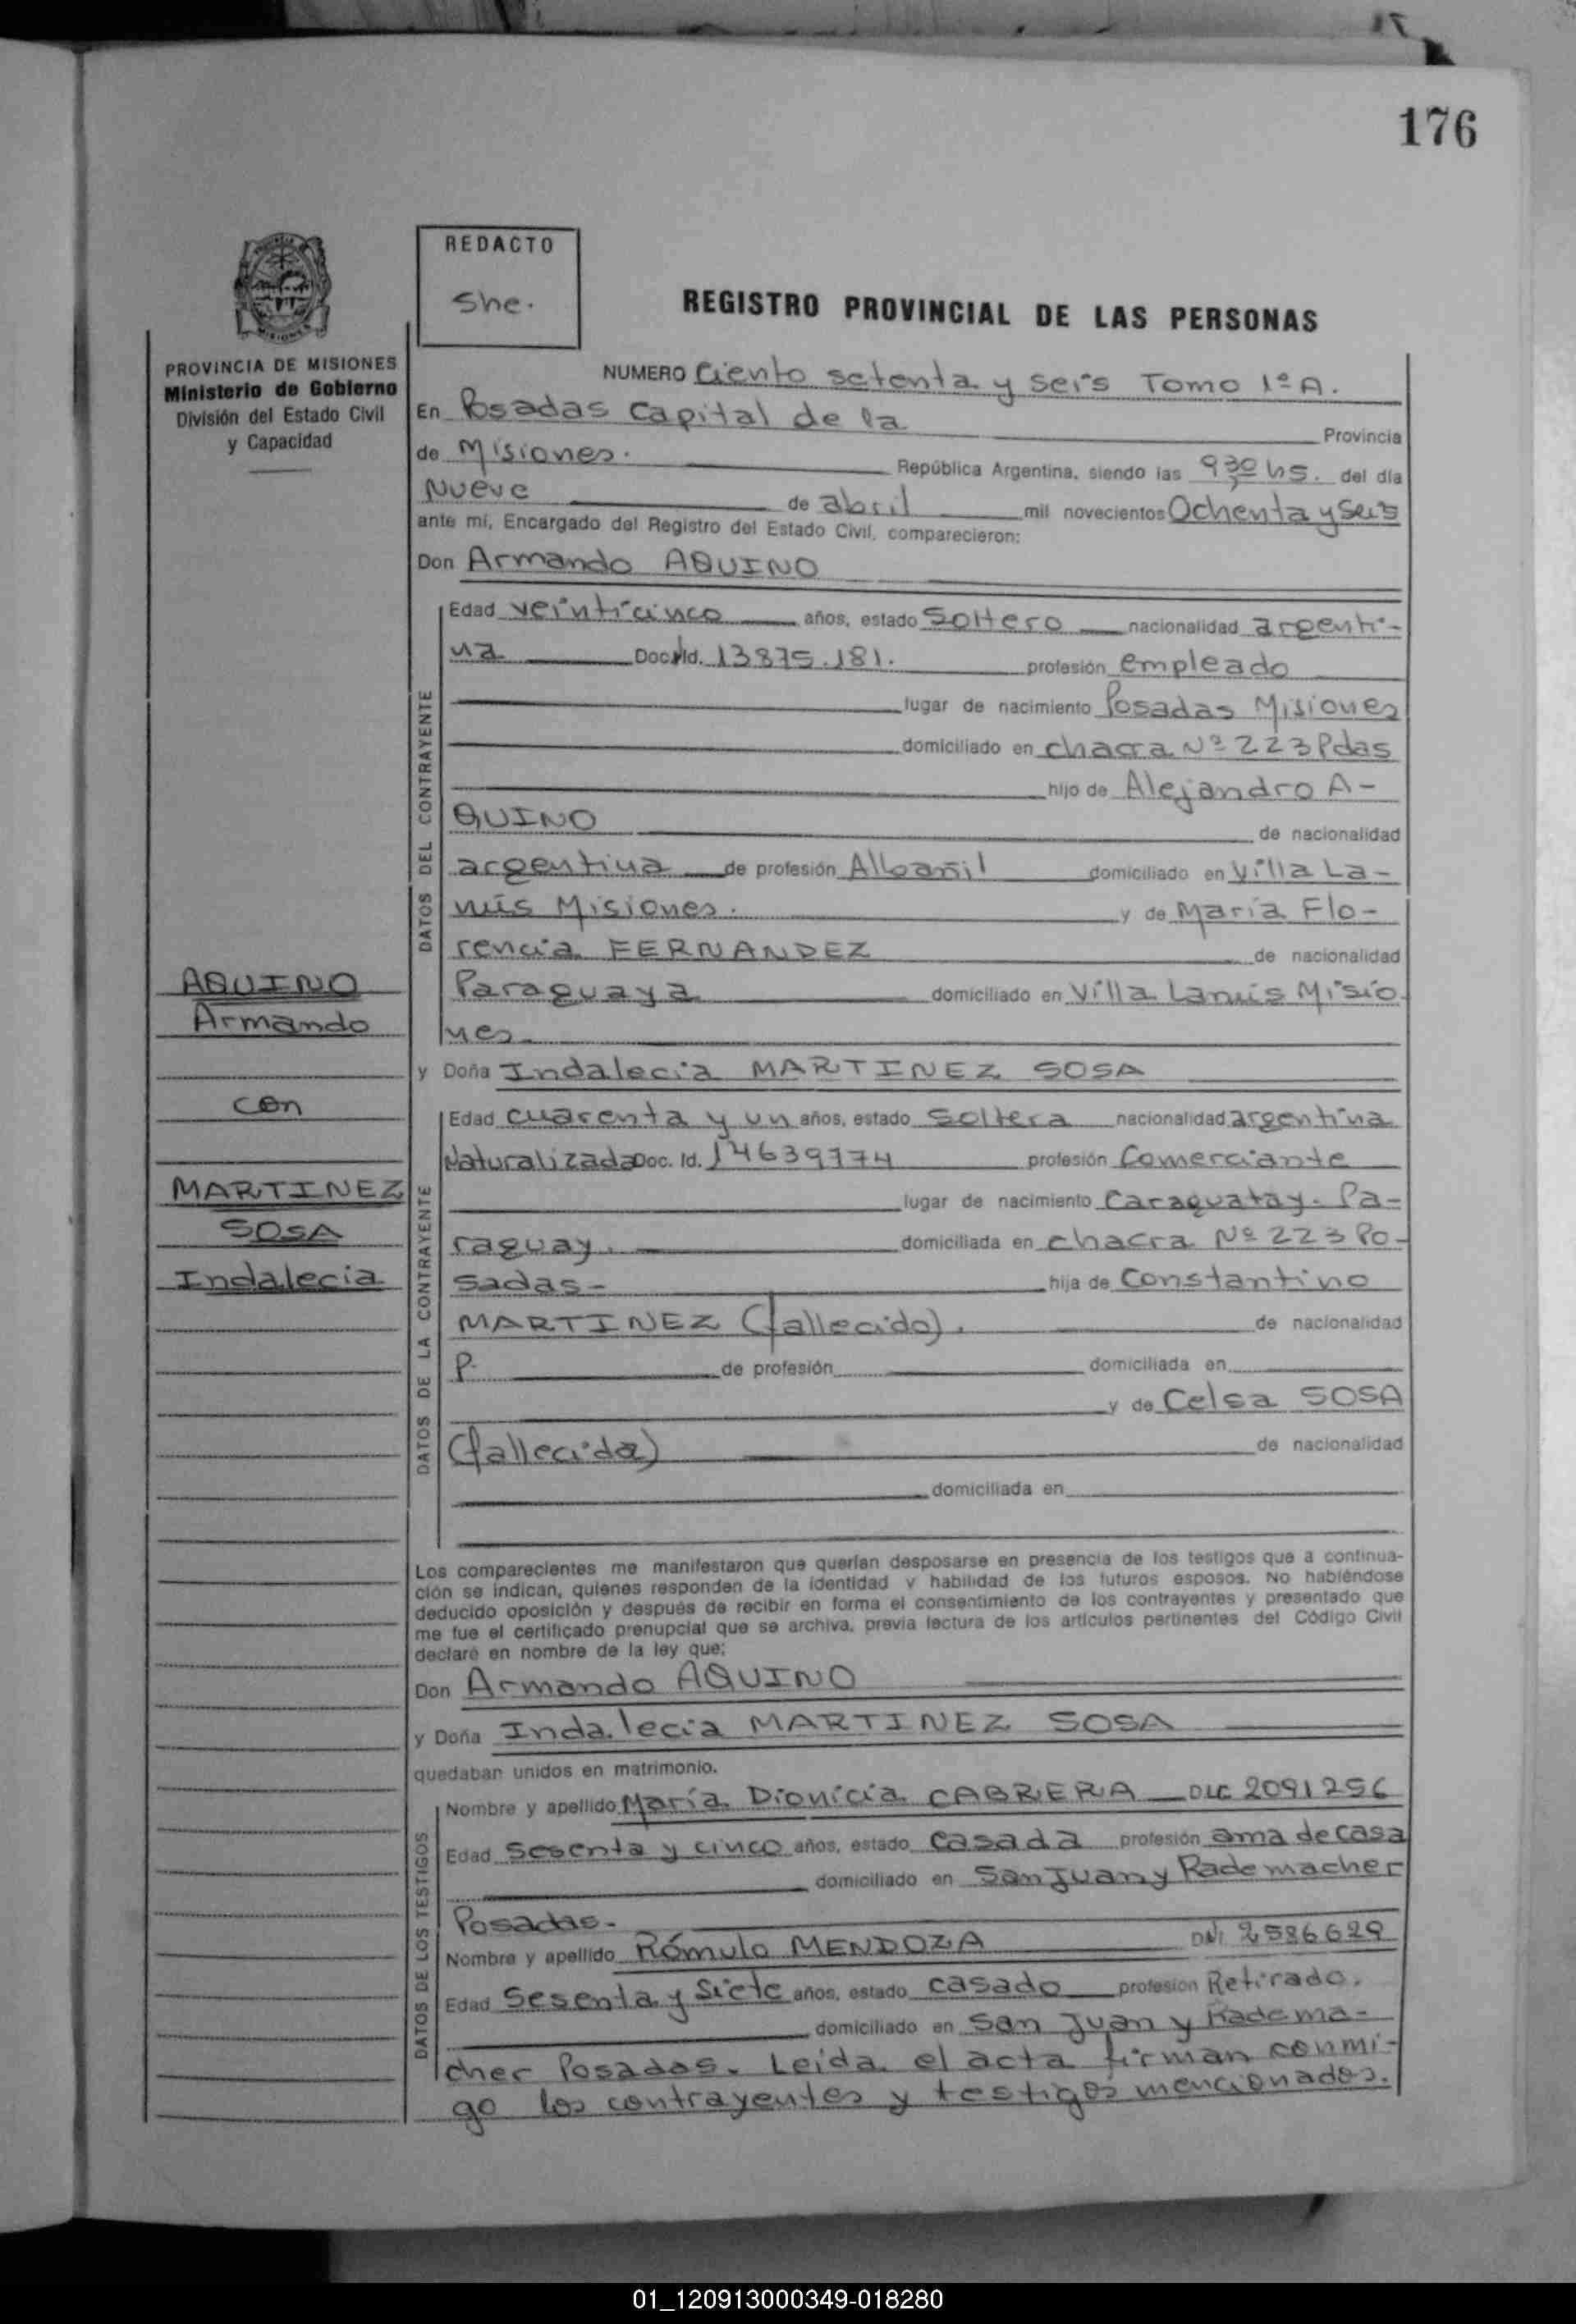 176
REDACTO
She.
REGISTRO PROVINCIAL DE LAS PERSONAS
PROVINCIA DE MISIONES
Ministerio de Gobierno
División del Estado Civil
y Capacidad
NUMERO Ciento setenta y seis Tomo 1º A.
En Posadas Capital de la Provincia
de Misiones. República Argentina, siendo las 9,30 hs. del día
Nueve de abril mil novecientos Ochenta y Seis
ante mí, Encargado del Registro del Estado Civil, comparecieron:
Don Armando AQUINO
DATOS DEL CONTRAYENTE
Edad veinticinco años, estado Soltero nacionalidad argenti-
na Doc. Id. 13875.181. profesión empleado
lugar de nacimiento Posadas Misiones
domiciliado en chacra Nº 223 Pdas
hijo de Alejandro A-
QUINO de nacionalidad
argentina de profesión Albañil domiciliado en Villa La-
nús Misiones. y de María Flo-
rencia FERNANDEZ de nacionalidad
Paraguaya domiciliado en Villa Lanús Misio
nes.
AQUINO
Armando
con
MARTINEZ
SOSA
Indalecia
y Doña Indalecia MARTINEZ SOSA
DATOS DE LA CONTRAYENTE
Edad cuarenta y un años, estado Soltera nacionalidad argentina
Naturalizada Doc. Id. 14639774 profesión Comerciante
lugar de nacimiento Caraguatay. Pa-
raguay. domiciliada en chacra Nº 223 Po-
sadas- hija de Constantino
MARTINEZ (fallecido). de nacionalidad
P. de profesión domiciliada en
y de Celsa SOSA
(fallecida) de nacionalidad
domiciliada en
Los comparecientes me manifestaron que querían desposarse en presencia de los testigos que a continua-
ción se indican, quienes responden de la identidad y habilidad de los futuros esposos. No habiéndose
deducido oposición y después de recibir en forma el consentimiento de los contrayentes y presentado que
me fue el certificado prenupcial que se archiva, previa lectura de los artículos pertinentes del Código Civil
declaré en nombre de la ley que:
Don Armando AQUINO
y Doña Indalecia MARTINEZ SOSA
quedaban unidos en matrimonio.
DATOS DE LOS TESTIGOS
Nombre y apellido María Dionicia CABRERA DLC 2091256
Edad Sesenta y cinco años, estado Casada profesión ama de casa
domiciliado en San Juan y Rademacher
Posadas-
Nombre y apellido Rómulo MENDOZA DNI 2586629
Edad Sesenta y Siete años, estado casado profesión Retirado.
domiciliado en San Juan y Radema-
cher Posadas. Leida el acta firman conmi-
go los contrayentes y testigos mencionados.
01_120913000349-018280